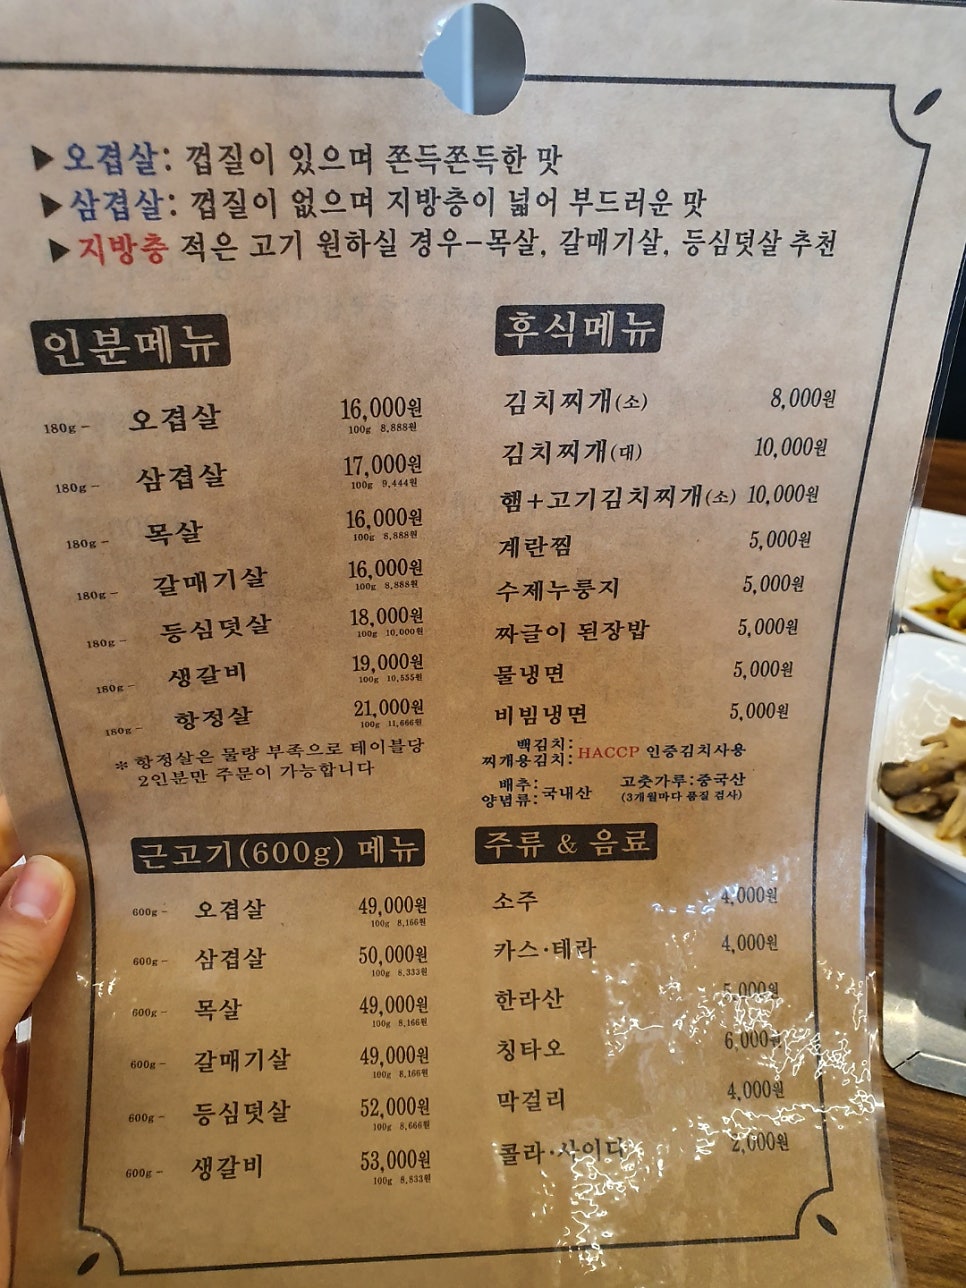 ▶오겹살: 껍질이 있으며 쫀득쫀득한 맛
▶삼겹살: 껍질이 없으며 지방층이 넓어 부드러운 맛
▶지방층 적은 고기 원하실 경우-목살, 갈매기살, 등심덧살 추천
인분메뉴
180g - 오겹살 16,000원
100g 8,888원
180g - 삼겹살 17,000원
100g 9,444원
180g - 목살 16,000원
100g 8,888원
180g - 갈매기살 16,000원
100g 8,888원
180g - 등심덧살 18,000원
100g 10,000원
180g - 생갈비 19,000원
100g 10,555원
180g - 항정살 21,000원
100g 11,666원
※ 항정살은 물량 부족으로 테이블당
2인분만 주문이 가능합니다
후식메뉴
김치찌개(소) 8,000원
김치찌개(대) 10,000원
햄+고기김치찌개(소) 10,000원
계란찜 5,000원
수제누룽지 5,000원
짜글이 된장밥 5,000원
물냉면 5,000원
비빔냉면 5,000원
백김치:
찌개용김치: HACCP 인증김치사용
배추:
양념류: 국내산
고춧가루:중국산
(3개월마다 품질 검사)
근고기(600g) 메뉴
600g - 오겹살 49,000원
100g 8,166원
600g - 삼겹살 50,000원
100g 8,333원
600g - 목살 49,000원
100g 8,166원
600g - 갈매기살 49,000원
100g 8,166원
600g - 등심덧살 52,000원
100g 8,666원
600g - 생갈비 53,000원
100g 8,833원
주류 & 음료
소주 4,000원
카스·테라 4,000원
한라산 5,000원
칭타오 6,000원
막걸리 4,000원
콜라·사이다 2,000원